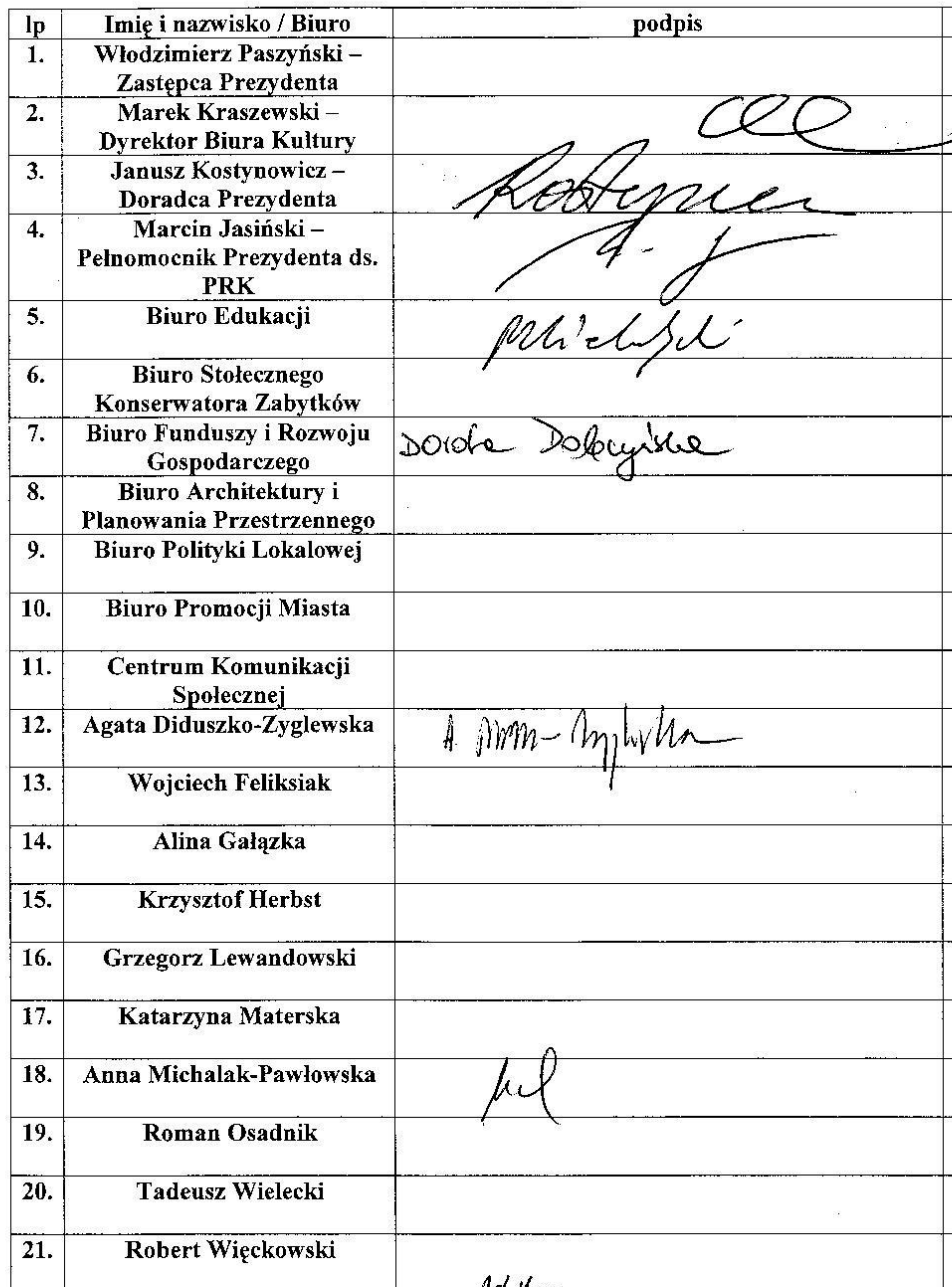 lp Imię i nazwisko / Biuro podpis
1. Włodzimierz Paszyński –
Zastępca Prezydenta
2. Marek Kraszewski –
Dyrektor Biura Kultury
3. Janusz Kostynowicz –
Doradca Prezydenta
4. Marcin Jasiński –
Pełnomocnik Prezydenta ds.
PRK
5. Biuro Edukacji
6. Biuro Stołecznego
Konserwatora Zabytków
7. Biuro Funduszy i Rozwoju Dorota
Gospodarczego
8. Biuro Architektury i
Planowania Przestrzennego
9. Biuro Polityki Lokalowej
10. Biuro Promocji Miasta
11. Centrum Komunikacji
Społecznej
12. Agata Diduszko-Zyglewska A.
13. Wojciech Feliksiak
14. Alina Gałązka
15. Krzysztof Herbst
16. Grzegorz Lewandowski
17. Katarzyna Materska
18. Anna Michalak-Pawłowska
19. Roman Osadnik
20. Tadeusz Wielecki
21. Robert Więckowski